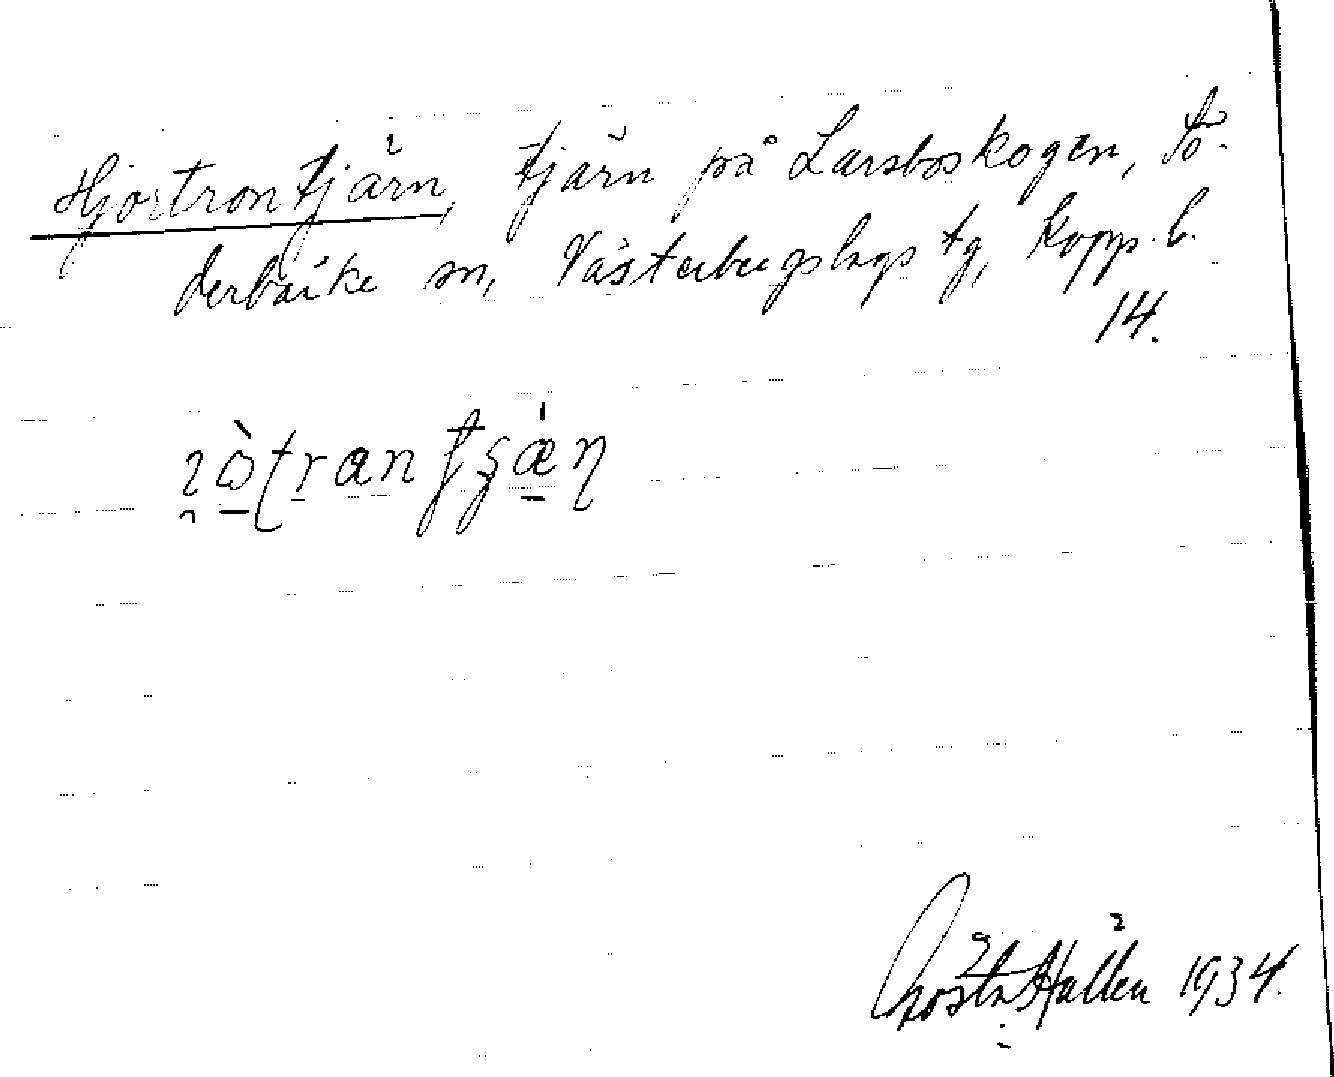 Hjortrontjärn, tjärn på Larsboskogen, Sö-
derbärke sn, Västerbergslags tg, Kopp. l.
14.
Gösta Hallén 1934.